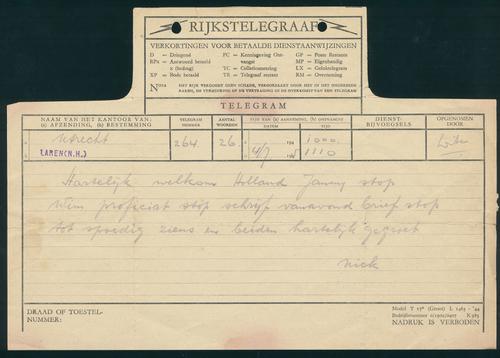 RIJKSTELEGRAAF
VERKORTINGEN VOOR BETAALDE DIENSTAANWIJZINGEN
D = Dringend
RPx = Antwoord betaald x (bedrag)
XP = Bode betaald
PC = Kennisgeving Ontvangst
TC = Collationneering
TR = Telegraaf restant
GP = Poste Restante
MP = Eigenhandig
LX = Geluktelegram
RM = Overseining
TELEGRAM
NAAM VAN HET KANTOOR VAN:
(a) AFZENDING, (b) BESTEMMING
TELEGRAM NUMMER
AANTAL WOORDEN
TIJD VAN (a) AANNEMING, (b) ONTVANGST
DATUM
TIJD
DIENST-BIJVOEGSELS
OPGENOMEN DOOR
Utrecht
LAREN(N.H.)
264
26
4/7
194
1000
1110
Hartelijk welkom Holland Janny stop
Wim proficiat stop schrijf vanavond brief stop
tot spoedig ziens en beiden hartelijk gegroet
Nick
DRAAD OF TOESTEL-
NUMMER:
NADRUK IS VERBODEN